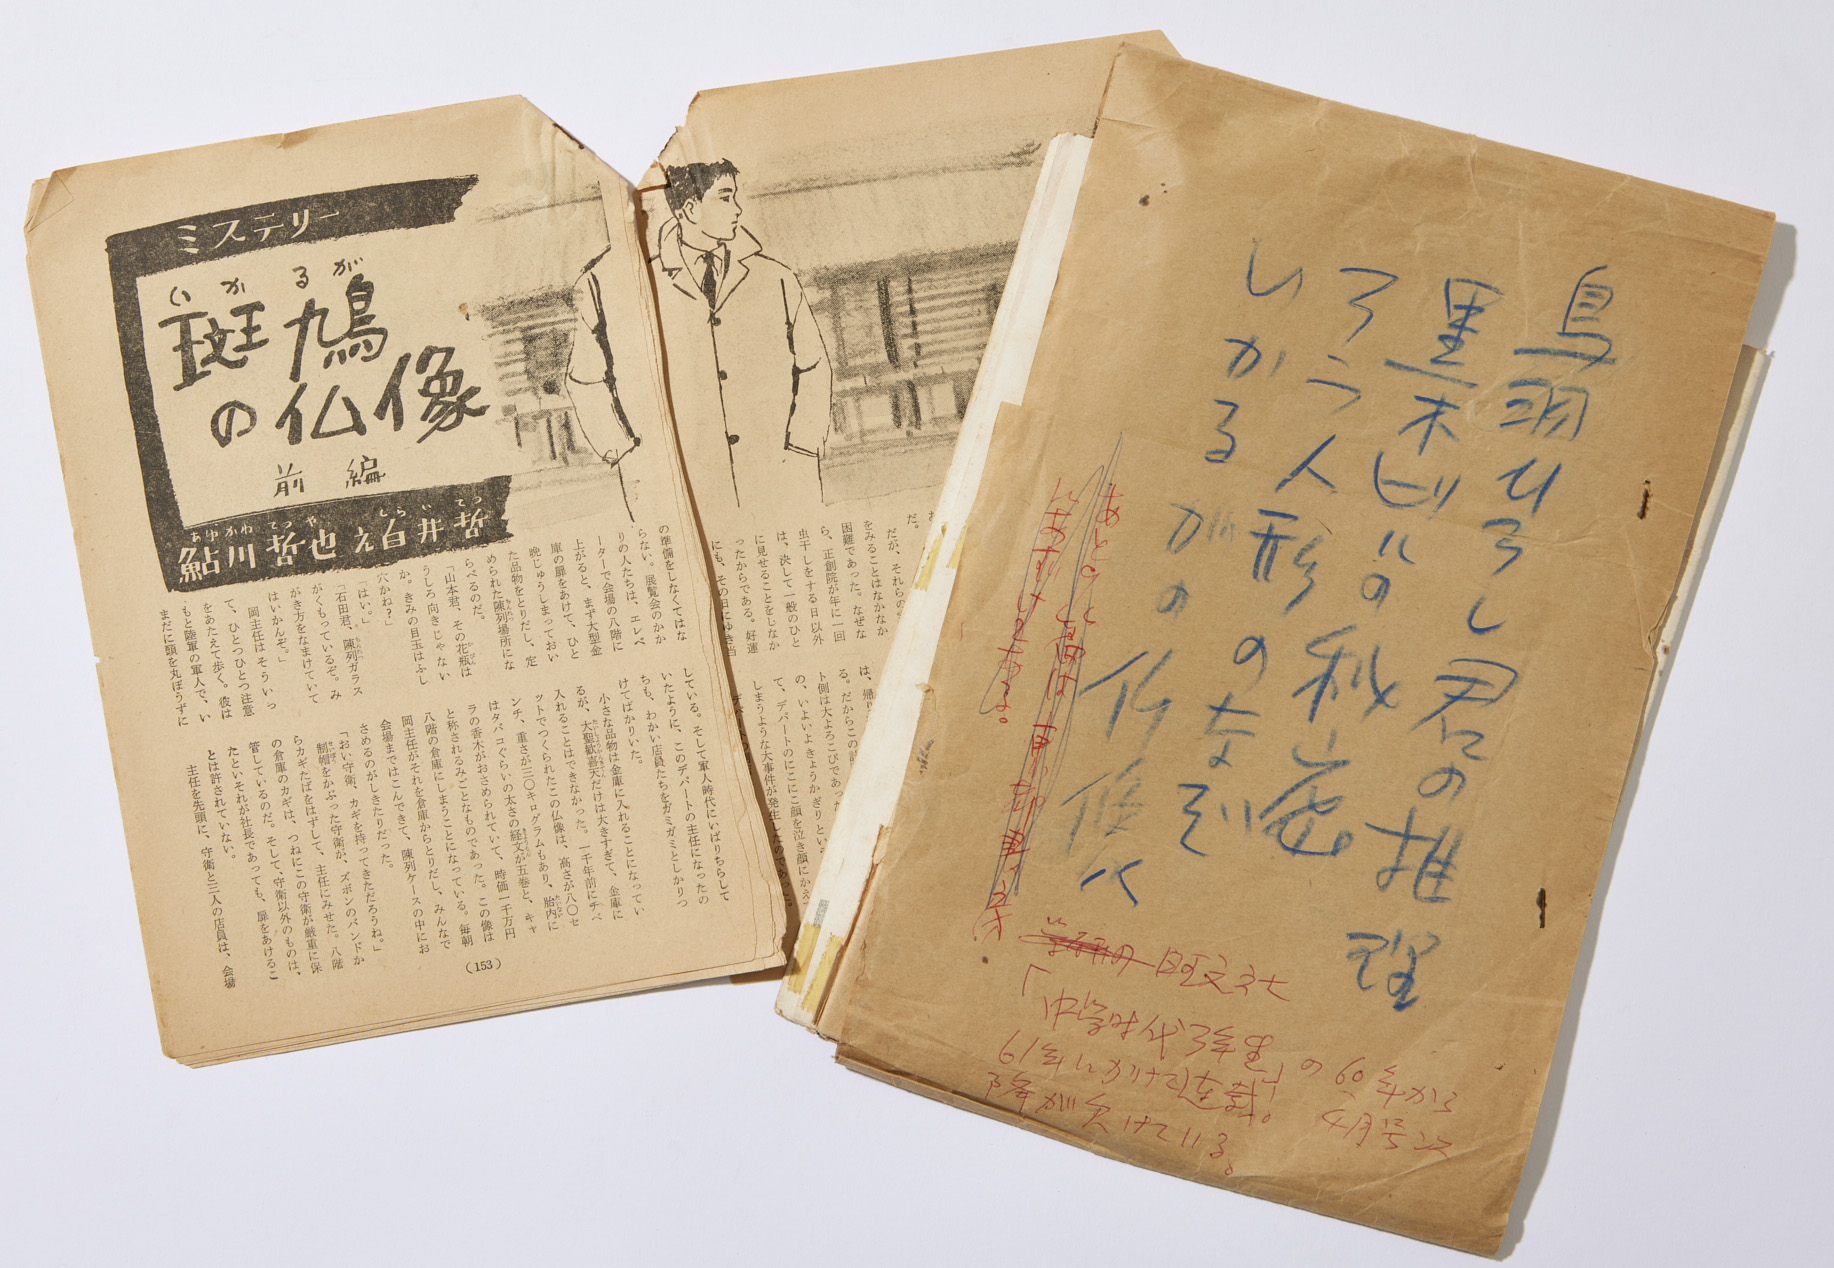 ミステリー
いかるが
斑鳩
の仏像
前編
あゆかわ てつや しらい てつ
鮎川哲也 え白井哲
の準備をしなくてはな
らない。展覧会のかか
りの人たちは、エレベ
ーターで会場の八階に
上がると、まず大型金
庫の扉をあけて、ひと
晩じゅうしまっておい
た品物をとりだし、定
められた陳列場所にな
らべるのだ。
「山本君、その花瓶は
うしろ向きじゃない
か。きみの目玉はふし
穴かね?」
「はい。」
「石田君、陳列ガラス
がくもっているぞ。み
がき方をなまけていて
はいかんぞ。」
岡主任はそういっ
て、ひとつひとつ注意
をあたえて歩く。彼は
もと陸軍の軍人で、い
まだに頭を丸ぼうずに
している。そして軍人時代にいばりちらして
いたように、このデパートの主任になったの
ちも、わかい店員たちをガミガミとしかりつ
けてばかりいた。
小さな品物は金庫に入れることになってい
るが、大聖歓喜天だけは大きすぎて、金庫に
入れることはできなかった。一千年前にチベ
ットでつくられたこの仏像は、高さが八〇セ
ンチ、重さが三〇キログラムもあり、胎内に
はタバコぐらいの太さの経文が五巻と、キャ
ラの香木がおさめられていて、時価一千万円
と称されるみごとなものであった。この像は
八階の倉庫にしまうことになっている。毎朝
岡主任がそれを倉庫からとりだし、みんなで
会場まではこんできて、陳列ケースの中にお
さめるのがしきたりだった。
「おい守衛、カギを持ってきただろうね。」
制帽をかぶった守衛が、ズボンのバンドか
らカギたばをはずして、主任にみせた。八階
の倉庫のカギは、つねにこの守衛が厳重に保
管しているのだ。そして、守衛以外のものは、
たといそれが社長であっても、扉をあけるこ
とは許されていない。
主任を先頭に、守衛と三人の店員は、会場
(153)
だ。
だが、それらの
をみることはなかなか
困難であった。なぜな
ら、正創院が年に一回
虫干しをする日以外
は、決して一般のひと
に見せることをしなか
ったからである。好運
にも、その日にゆき当
は、帰り
る。だからこの
ト側は大よろこびであった
の、いよいよきょうかぎりという
て、デパートのにこにこ顔を泣き顔にかえて
しまうような大事件が発生したのであった。
鳥羽ひろし君の推理
黒木ビルの秘密
ろう人形のなぞ
いかるがの仏像
学研の 旺文社
「中学時代3年生」の60年から
61年にかけて連載。4月号以
降が欠けている。